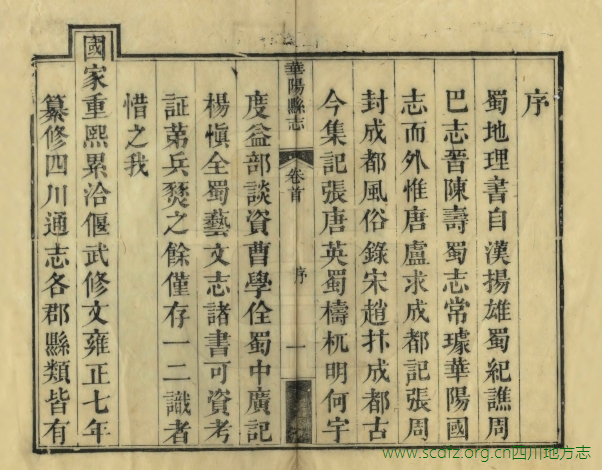 序
蜀地理書自漢揚雄蜀紀譙周
巴志晉陳壽蜀志常璩華陽國
志而外惟唐盧求成都記張周
封成都風俗錄宋趙抃成都古
今集記張唐英蜀檮杌明何宇
華陽縣志
卷首
序
一
度益部談資曹學佺蜀中廣記
楊愼全蜀藝文志諸書可資考
証苐兵燹之餘僅存一二識者
惜之我
國家重熙累洽偃武修文雍正七年
纂修四川通志各郡縣類皆有
www.scdfz.org.cn四川地方志